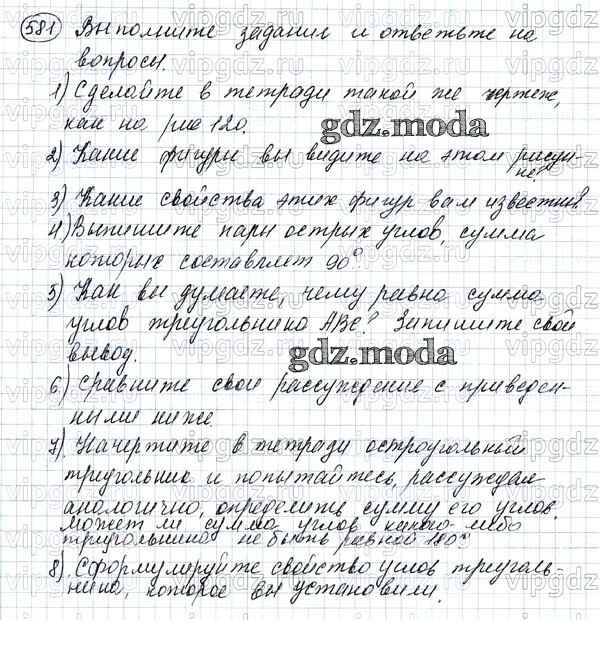 581 Выполните задания и ответьте на
вопросы.
1) Сделайте в тетради такой же чертеж,
как на рис 120.
gdz.moda
2) Какие фигуры вы видите на этом рисун-
ке?
3) Какие свойства этих фигур вам известны?
4) Выпишите пары острых углов, сумма
которых составляет 90°.
5) Как вы думаете, чему равна сумма
углов треугольника ABC? Запишите свой
вывод.
gdz.moda
6) Сравните свои рассуждение с приведен-
ными ниже.
7) Начертите в тетради остроугольный
треугольник и попытайтесь, рассуждая
аналогично, определить сумму его углов.
Может ли сумма углов какого-либо
треугольника не быть равной 180°?
8) Сформулируйте свойство углов треуголь-
ника, которое вы установили.